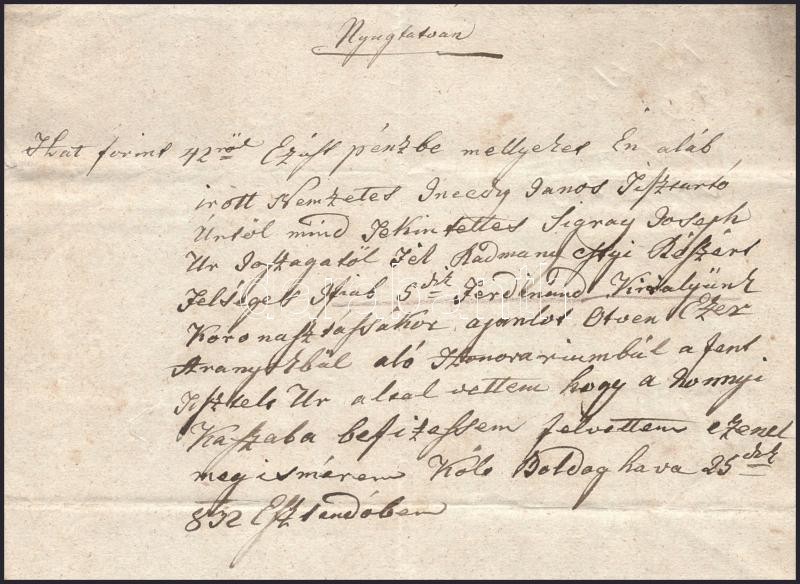 Nyugtatván
Hat forint 42 röd Ezüst pénzbe mellyeket Én aláb
irott Nemzetes Incedy Janos Tisztartó
Úrtól mind Tekintettes Sigray Joseph
Ur Joszagatól fél Radmano Részért
Felséges Ifiab 5dik Ferdinánd Királyünk
Koronasztássakor ajanlot Ötven Ezer
Aranyokbúl aló Honorariumbúl a fent
Tisztelt Ur altal vettem hogy a
Kaszaba befizessem felvettem ezenel
meg ismérem Költ Boldog hava 25dik
832 Esztendőben